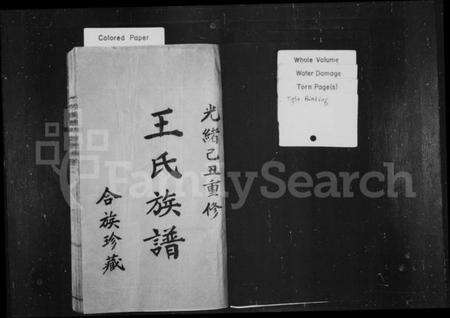 Colored Paper
光緒己丑重修
王氏族譜
合族珍藏
Whole Volume
Water Damage
Torn Page(s)
Tight Binding
FamilySearch